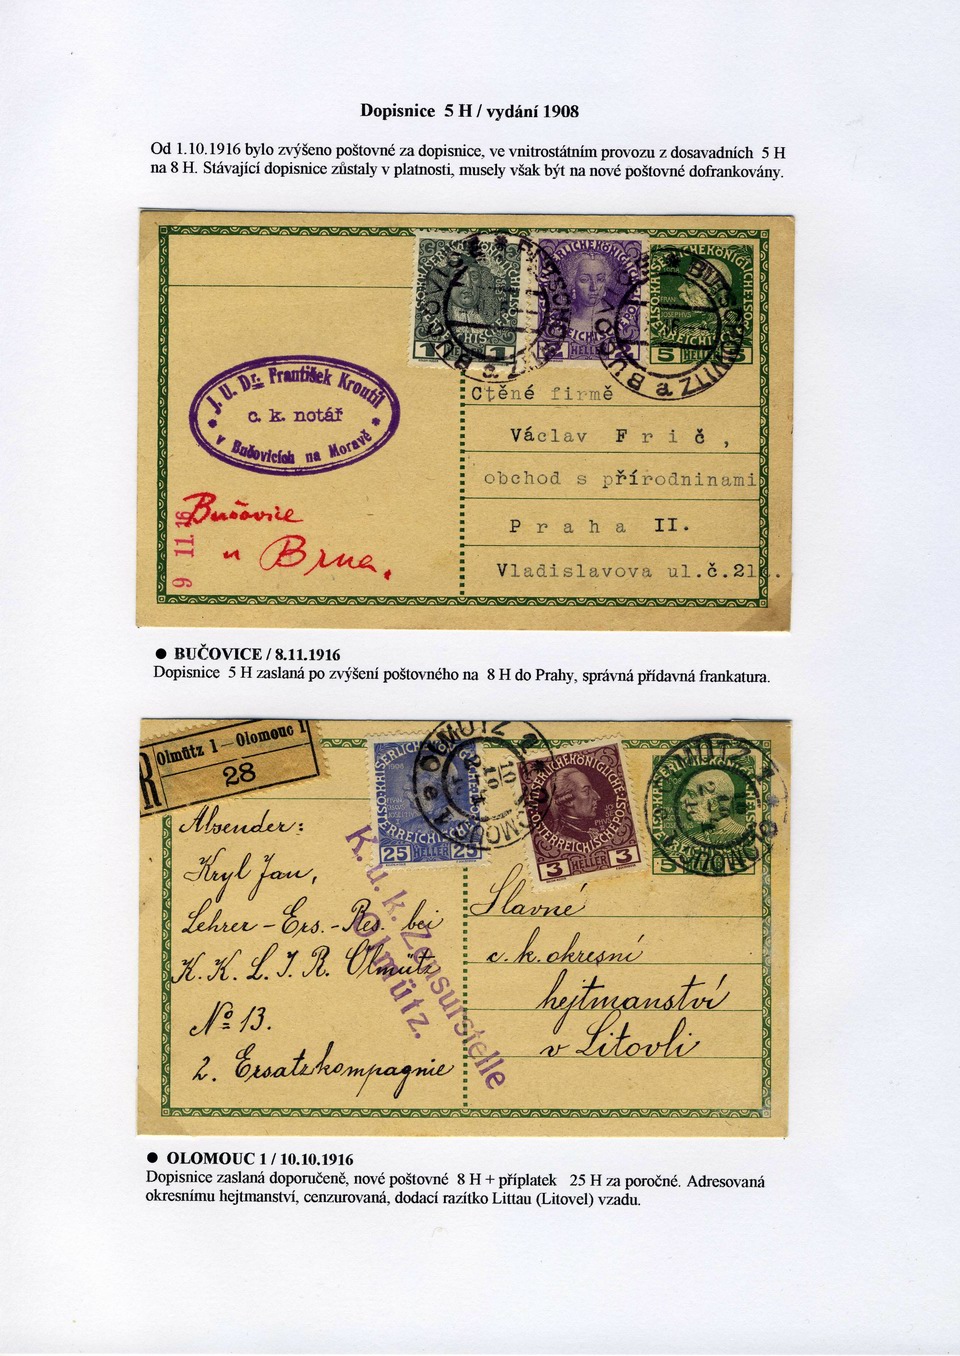 Dopisnice 5 H / vydání 1908
Od 1.10.1916 bylo zvýšeno poštovné za dopisnice, ve vnitrostátním provozu z dosavadních 5 H
na 8 H. Stávající dopisnice zůstaly v platnosti, musely však být na nové poštovné dofrankovány.
J. U. Dr. František Kroutil
c. k. notář
v Bučovicích na Moravě
9 11.16
Bučovice
u Brna.
1 1
HELLER
5 HELLER 5
BUČOVICE a
BUTSCHOWITZ
Ctěné firmě
Václav Frič,
obchod s přírodninami
Praha II.
Vladislavova ul.č.21
● BUČOVICE / 8.11.1916
Dopisnice 5 H zaslaná po zvýšení poštovného na 8 H do Prahy, správná přídavná frankatura.
R
Olmütz 1 – Olomouc 1
28
25 HELLER 25
3 HELLER 3
OLMÜTZ 1
Absender:
Kryl Jan,
Lehrer – Ers. – Res. bei
K. K. L. I. R. Olmütz
№ 13.
2. Ersatzkompagnie
K. u. k. Zensurstelle
Olmütz.
Slavné
c. k. okresní
hejtmanství
v Litovli
● OLOMOUC 1 / 10.10.1916
Dopisnice zaslaná doporučeně, nové poštovné 8 H + příplatek 25 H za poročné. Adresovaná
okresnímu hejtmanství, cenzurovaná, dodací razítko Littau (Litovel) vzadu.